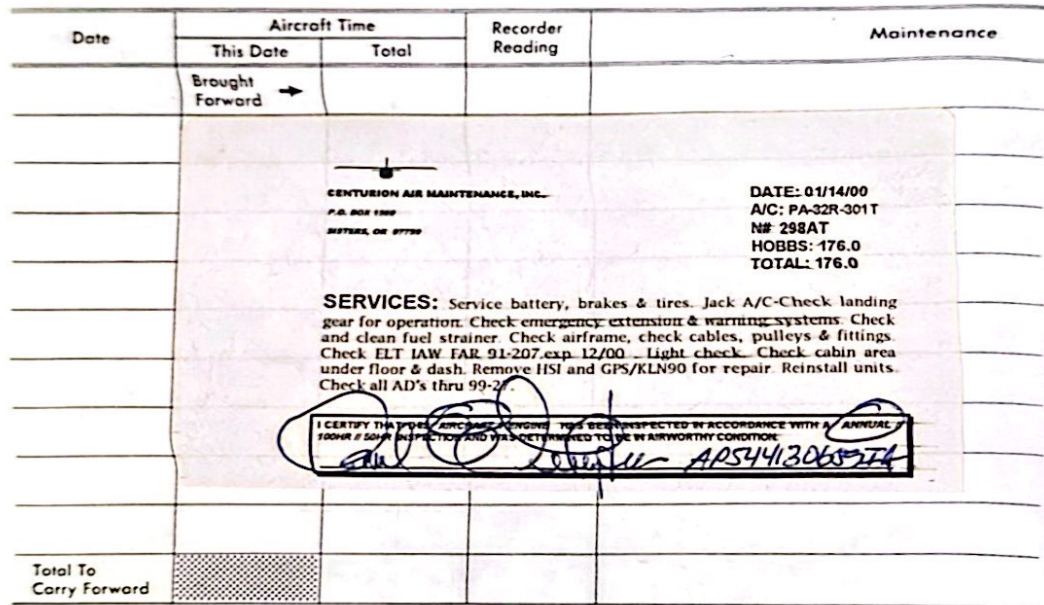 Date
Aircraft Time
This Date
Total
Recorder
Reading
Maintenance
Brought
Forward
CENTURION AIR MAINTENANCE, INC.
P.O. BOX 1980
SISTERS, OR 97759
DATE: 01/14/00
A/C: PA-32R-301T
N# 298AT
HOBBS: 176.0
TOTAL: 176.0
SERVICES: Service battery, brakes & tires. Jack A/C-Check landing
gear for operation. Check emergency extension & warning systems. Check
and clean fuel strainer. Check airframe, check cables, pulleys & fittings.
Check ELT IAW FAR 91-207.exp 12/00 . Light check. Check cabin area
under floor & dash. Remove HSI and GPS/KLN90 for repair. Reinstall units.
Check all AD's thru 99-27.
I CERTIFY THAT AIRCRAFT // ENGINE HAS BEEN INSPECTED IN ACCORDANCE WITH A ANNUAL //
100HR // 50HR INSPECTION AND WAS DETERMINED TO BE IN AIRWORTHY CONDITION
Total To
Carry Forward